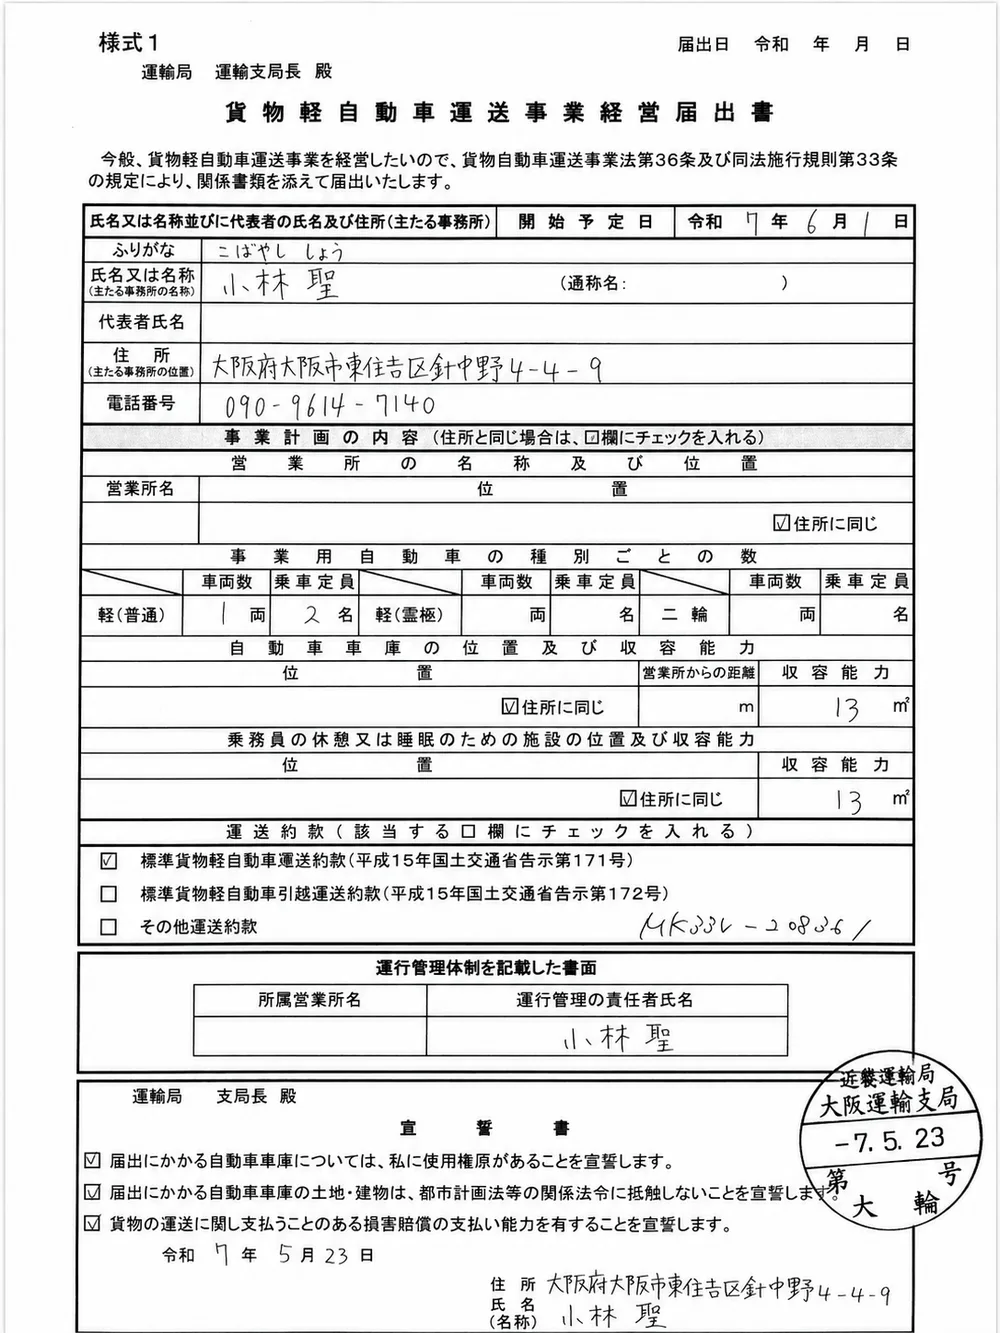 様式1
届出日　令和　年　月　日
運輸局　運輸支局長 殿
貨物軽自動車運送事業経営届出書
今般、貨物軽自動車運送事業を経営したいので、貨物自動車運送事業法第36条及び同法施行規則第33条
の規定により、関係書類を添えて届出いたします。
氏名又は名称並びに代表者の氏名及び住所(主たる事務所)　開始予定日　令和 7 年 6 月 1 日
ふりがな　こばやし しょう
氏名又は名称　小林 聖　(通称名:　)
(主たる事務所の名称)
代表者氏名
住所　大阪府大阪市東住吉区針中野4-4-9
(主たる事務所の位置)
電話番号　090-9614-7140
事業計画の内容(住所と同じ場合は、☑欄にチェックを入れる)
営業所の名称及び位置
営業所名　位置
☑住所に同じ
事業用自動車の種別ごとの数
車両数　乗車定員　車両数　乗車定員　車両数　乗車定員
軽(普通)　1 両　2 名　軽(霊柩)　両　名　二輪　両　名
自動車車庫の位置及び収容能力
位置　営業所からの距離　収容能力
☑住所に同じ　m　13 ㎡
乗務員の休憩又は睡眠のための施設の位置及び収容能力
位置　収容能力
☑住所に同じ　13 ㎡
運送約款(該当する□欄にチェックを入れる)
☑ 標準貨物軽自動車運送約款(平成15年国土交通省告示第171号)
□ 標準貨物軽自動車引越運送約款(平成15年国土交通省告示第172号)
□ その他運送約款　MK33V-208361
運行管理体制を記載した書面
所属営業所名　運行管理の責任者氏名
小林 聖
運輸局　支局長 殿
宣誓書
☑ 届出にかかる自動車車庫については、私に使用権原があることを宣誓します。
☑ 届出にかかる自動車車庫の土地・建物は、都市計画法等の関係法令に抵触しないことを宣誓します。
☑ 貨物の運送に関し支払うことのある損害賠償の支払い能力を有することを宣誓します。
令和 7 年 5 月 23 日
近畿運輸局
大阪運輸支局
-7.5.23
第　号
大輪
住所　大阪府大阪市東住吉区針中野4-4-9
氏名　小林 聖
(名称)